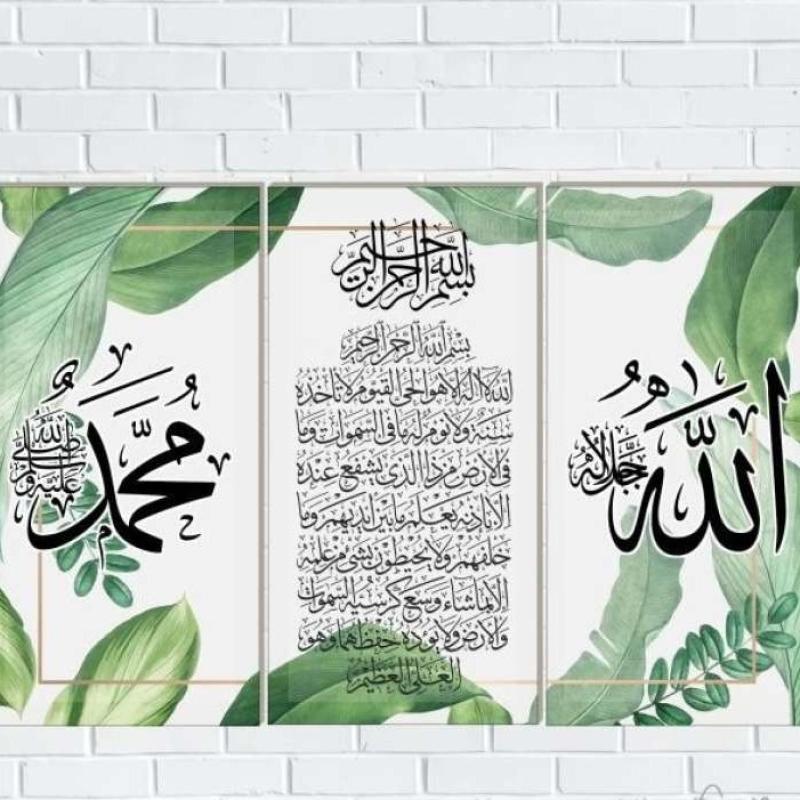 الله
جل جلاله
بسم الله الرحمن الرحيم
بسم الله الرحمن الرحيم
الله لا اله الا هو الحي القيوم لا تاخذه
سنة ولا نوم له ما في السموات وما
في الارض من ذا الذي يشفع عنده
الا باذنه يعلم ما بين ايديهم وما
خلفهم ولا يحيطون بشيء من علمه
الا بما شاء وسع كرسيه السموات
والارض ولا يوده حفظهما وهو
العلي العظيم
محمد
صلى الله عليه وسلم